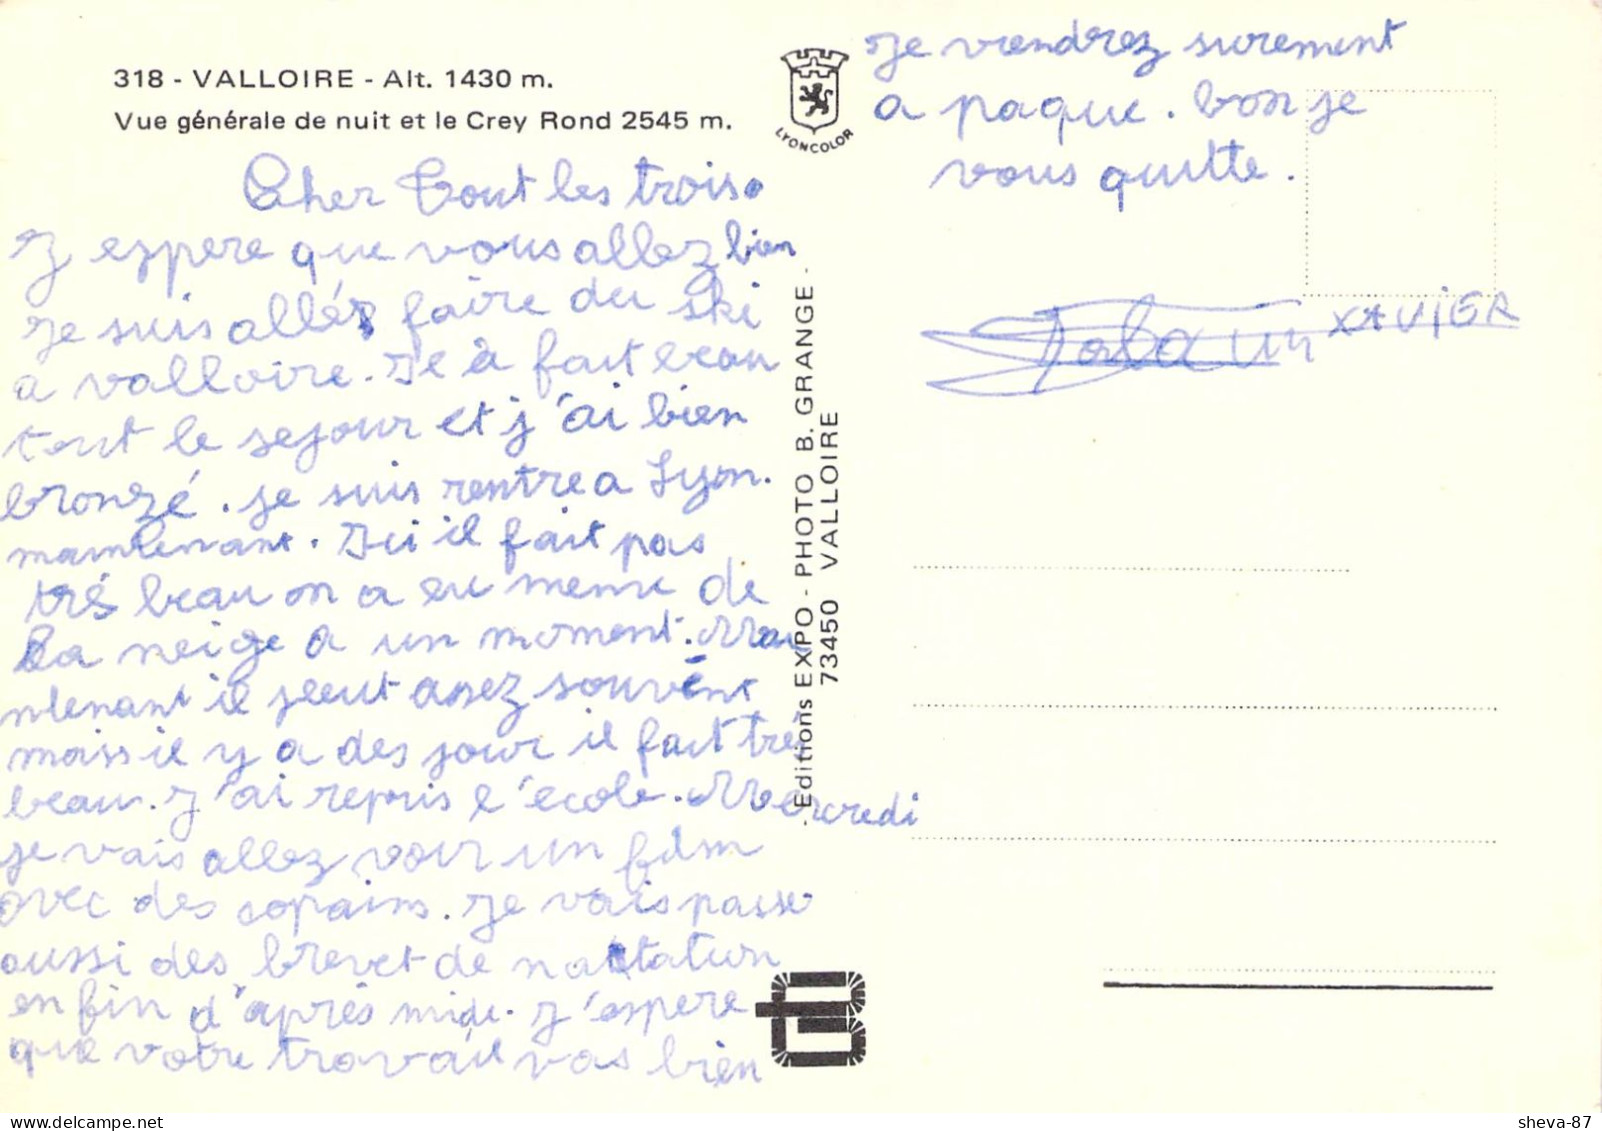 318 - VALLOIRE - Alt. 1430 m.
Vue générale de nuit et le Crey Rond 2545 m.
LYONCOLOR
Cher Tout les trois.
J espere que vous allez bien
Je suis allér faire du ski
a valloire. Il à fait beau
tout le sejour et j'ai bien
bronzé. je suis rentre a Lyon.
maintenant. Ici il fait pas
trés beau on a eu meme de
la neige a un moment. Mai
ntenant il pleut assez souvent
mais il y a des jour il fait très
beau. J'ai repris l'école. Mercredi
je vais allez voir un film
avec des copains. Je vais passe
aussi des brevet de natation
en fin d'après midi. J'espere
que votre travail vas bien
Je viendrez surement
a paque. bon je
vous quitte.
XAVIER
Editions EXPO - PHOTO B. GRANGE -
73450 VALLOIRE
sheva-87